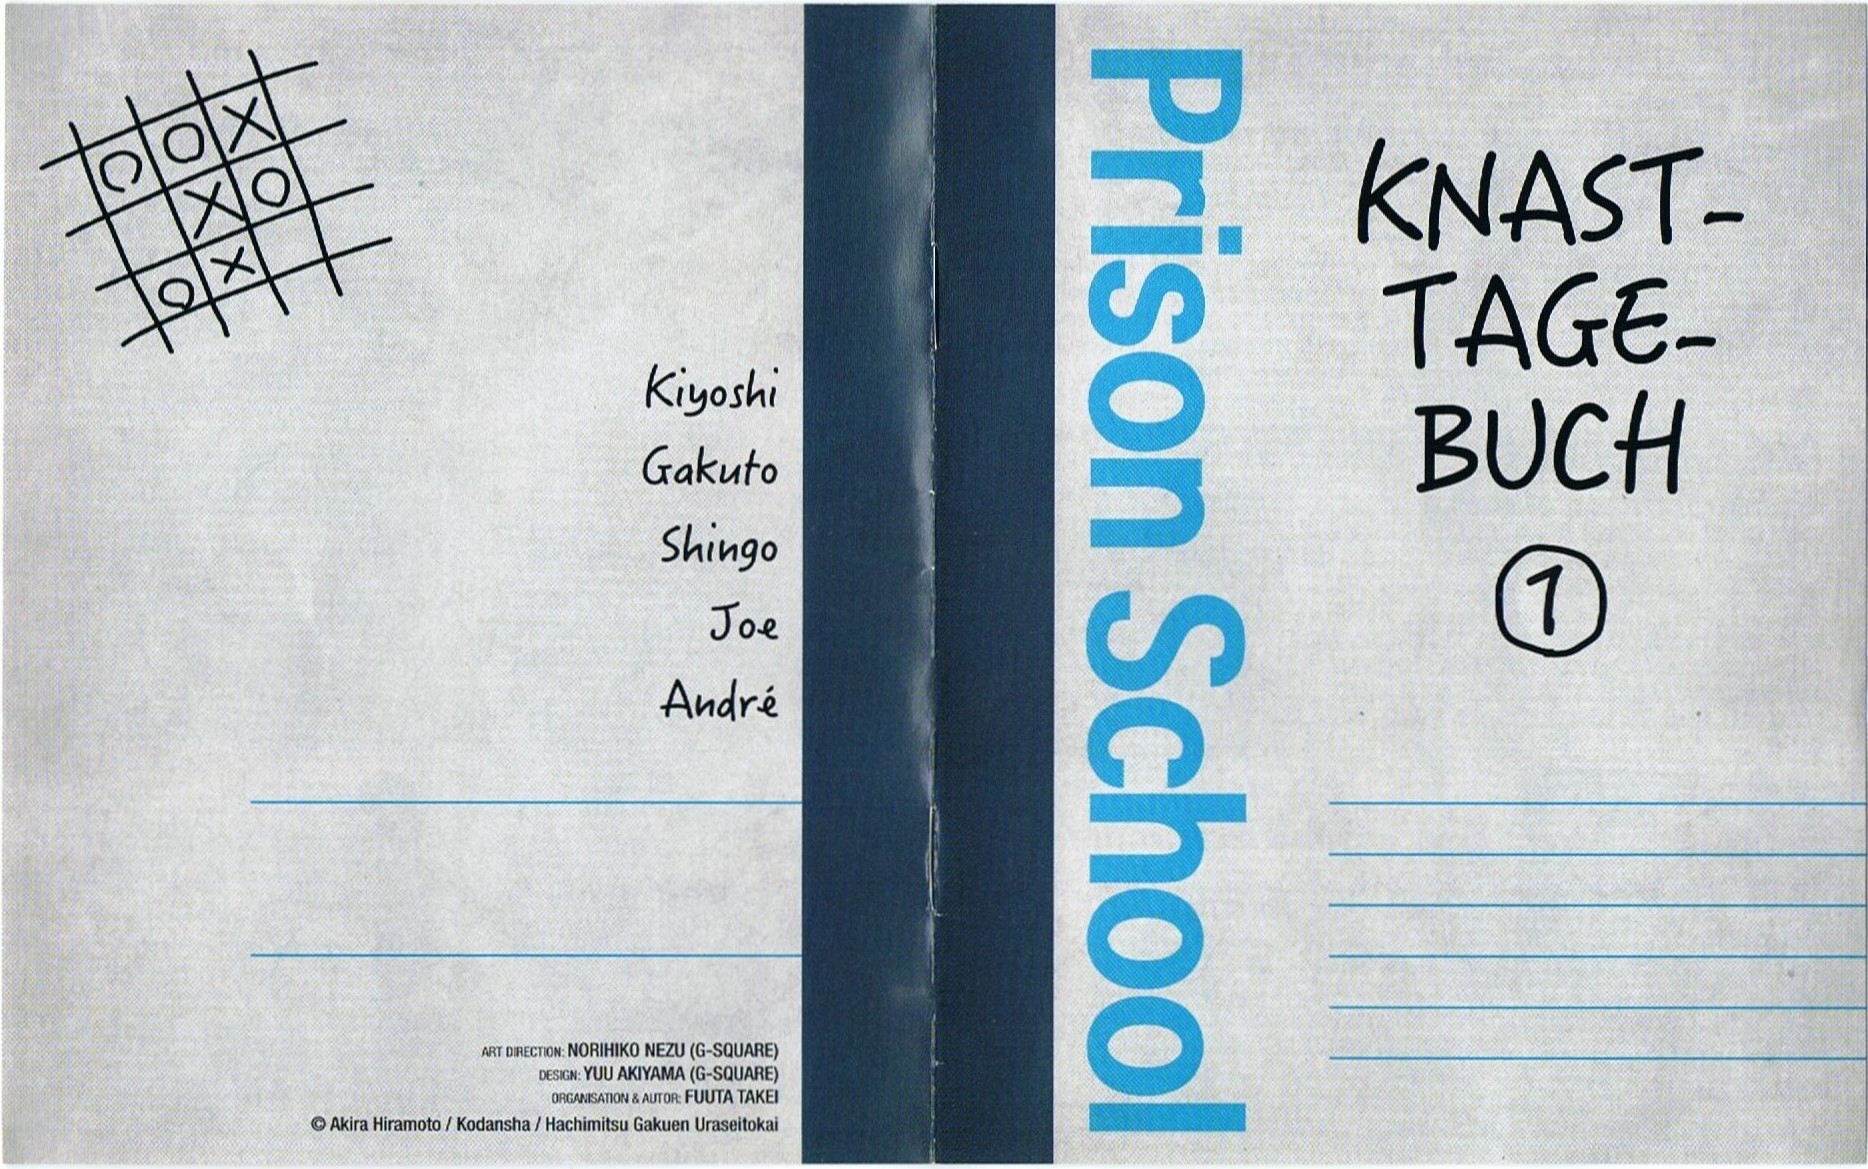 O O X
X O
O X
Kiyoshi
Gakuto
Shingo
Joe
André
ART DIRECTION: NORIHIKO NEZU (G-SQUARE)
DESIGN: YUU AKIYAMA (G-SQUARE)
ORGANISATION & AUTOR: FUUTA TAKEI
© Akira Hiramoto / Kodansha / Hachimitsu Gakuen Uraseitokai
Prison School
KNAST-
TAGE-
BUCH
1